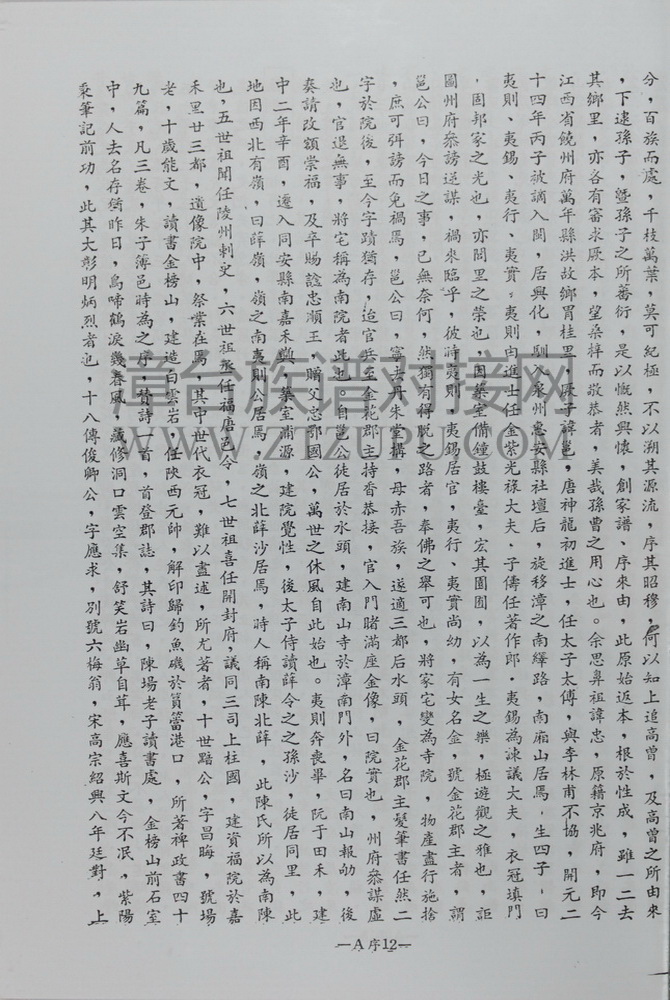 分，百族而處，千枝萬葉，莫可紀極，不以溯其源流，序其昭穆，何以知上追高曾，及高曾之所由來
，下逮孫子，暨孫子之所蕃衍，是以慨然興懷，創家譜、序來由，此原始返本，根於性成，雖一二去
其鄉里，亦各有審求厥本，望桑梓而敬恭者，美哉孫曾之用心也。余思鼻祖諱忠，原籍京兆府，即今
江西省饒州府萬年縣洪故鄉胃桂里，厥子諱邕，唐神龍初進士，任太子太傅，與李林甫不協，開元二
十四年丙子被謫入閩，居興化，馴入泉州惠安縣社壇后，旋移漳之南繹路，南廂山居焉，生四子，曰
夷則、夷錫、夷行、夷實，夷則由進士任金紫光祿大夫，子儔任著作郎，夷錫為諫議大夫，衣冠填門
，固邦家之光也，亦閭里之榮也，因築室備鐘鼓樓臺，宏其園囿，以為一生之樂，極遊觀之雅也，詎
圖州府叅謗逆謀，禍來臨乎，彼時夷則、夷錫居官，夷行、夷實尚幼，有女名金，號金花郡主者，謂
邕公曰，今日之事，已無奈何，然獨有得脫之路者，奉佛之舉可也，將家宅變為寺院，物產盡行施捨
，庶可弭謗而免禍焉，邕公曰，寧去丹朱堂構，毋赤吾族，遂適三都后水頭，金花郡主髮筆書任然二
字於院後，至今字蹟猶存，迨官兵至金花郡主持香恭接，官入門睹滿座金像，曰院實也，州府叅謀虛
也，官退無事，將宅稱為南院者此也，自邕公徒居於水頭，建南山寺於漳南門外，名曰南山報劬，後
奏請改額崇福，及卒賜諡忠順王，贈父忠鄂國公，萬世之休風自此始也。夷則奔喪畢，阮于田禾，建
中二年辛酉，遷入同安縣南嘉禾嶼，築室浦源，建院覺性，後太子侍讀薛令之之孫沙，徒居同里，此
地因西北有嶺，曰薛嶺，嶺之南夷則公居焉，嶺之北薛沙居焉，時人稱南陳北薛，此陳氏所以為南陳
也，五世祖聞任陵州刺史，六世祖丞任福唐邑令，七世祖喜任開封府，議同三司上柱國，建資福院於嘉
禾里廿三都，遺像院中，祭業在焉，其中世代衣冠，難以盡述，所尤著者，十世黯公，字昌晦，號場
老，十歲能文，讀書金榜山，建造白雲岩，任陝西元帥，解印歸釣魚磯於篔簹港口，所著裨政書四十
九篇，凡三卷，朱子簿邑時為之序，贊詩一首，首登郡誌，其詩曰，陳場老子讀書處，金榜山前石室
中，人去名存猶昨日，鳥啼鶴淚幾春風，藏修洞口雲空集，舒笑岩幽草自茸，應喜斯文今不泯，紫陽
秉筆記前功，此其大彰明炳烈者也，十八傳俊卿公，字應求，別號六梅翁，宋高宗紹興八年廷對，上
—A序12—
漳台族谱对接网
WWW.ZTZUPU.COM